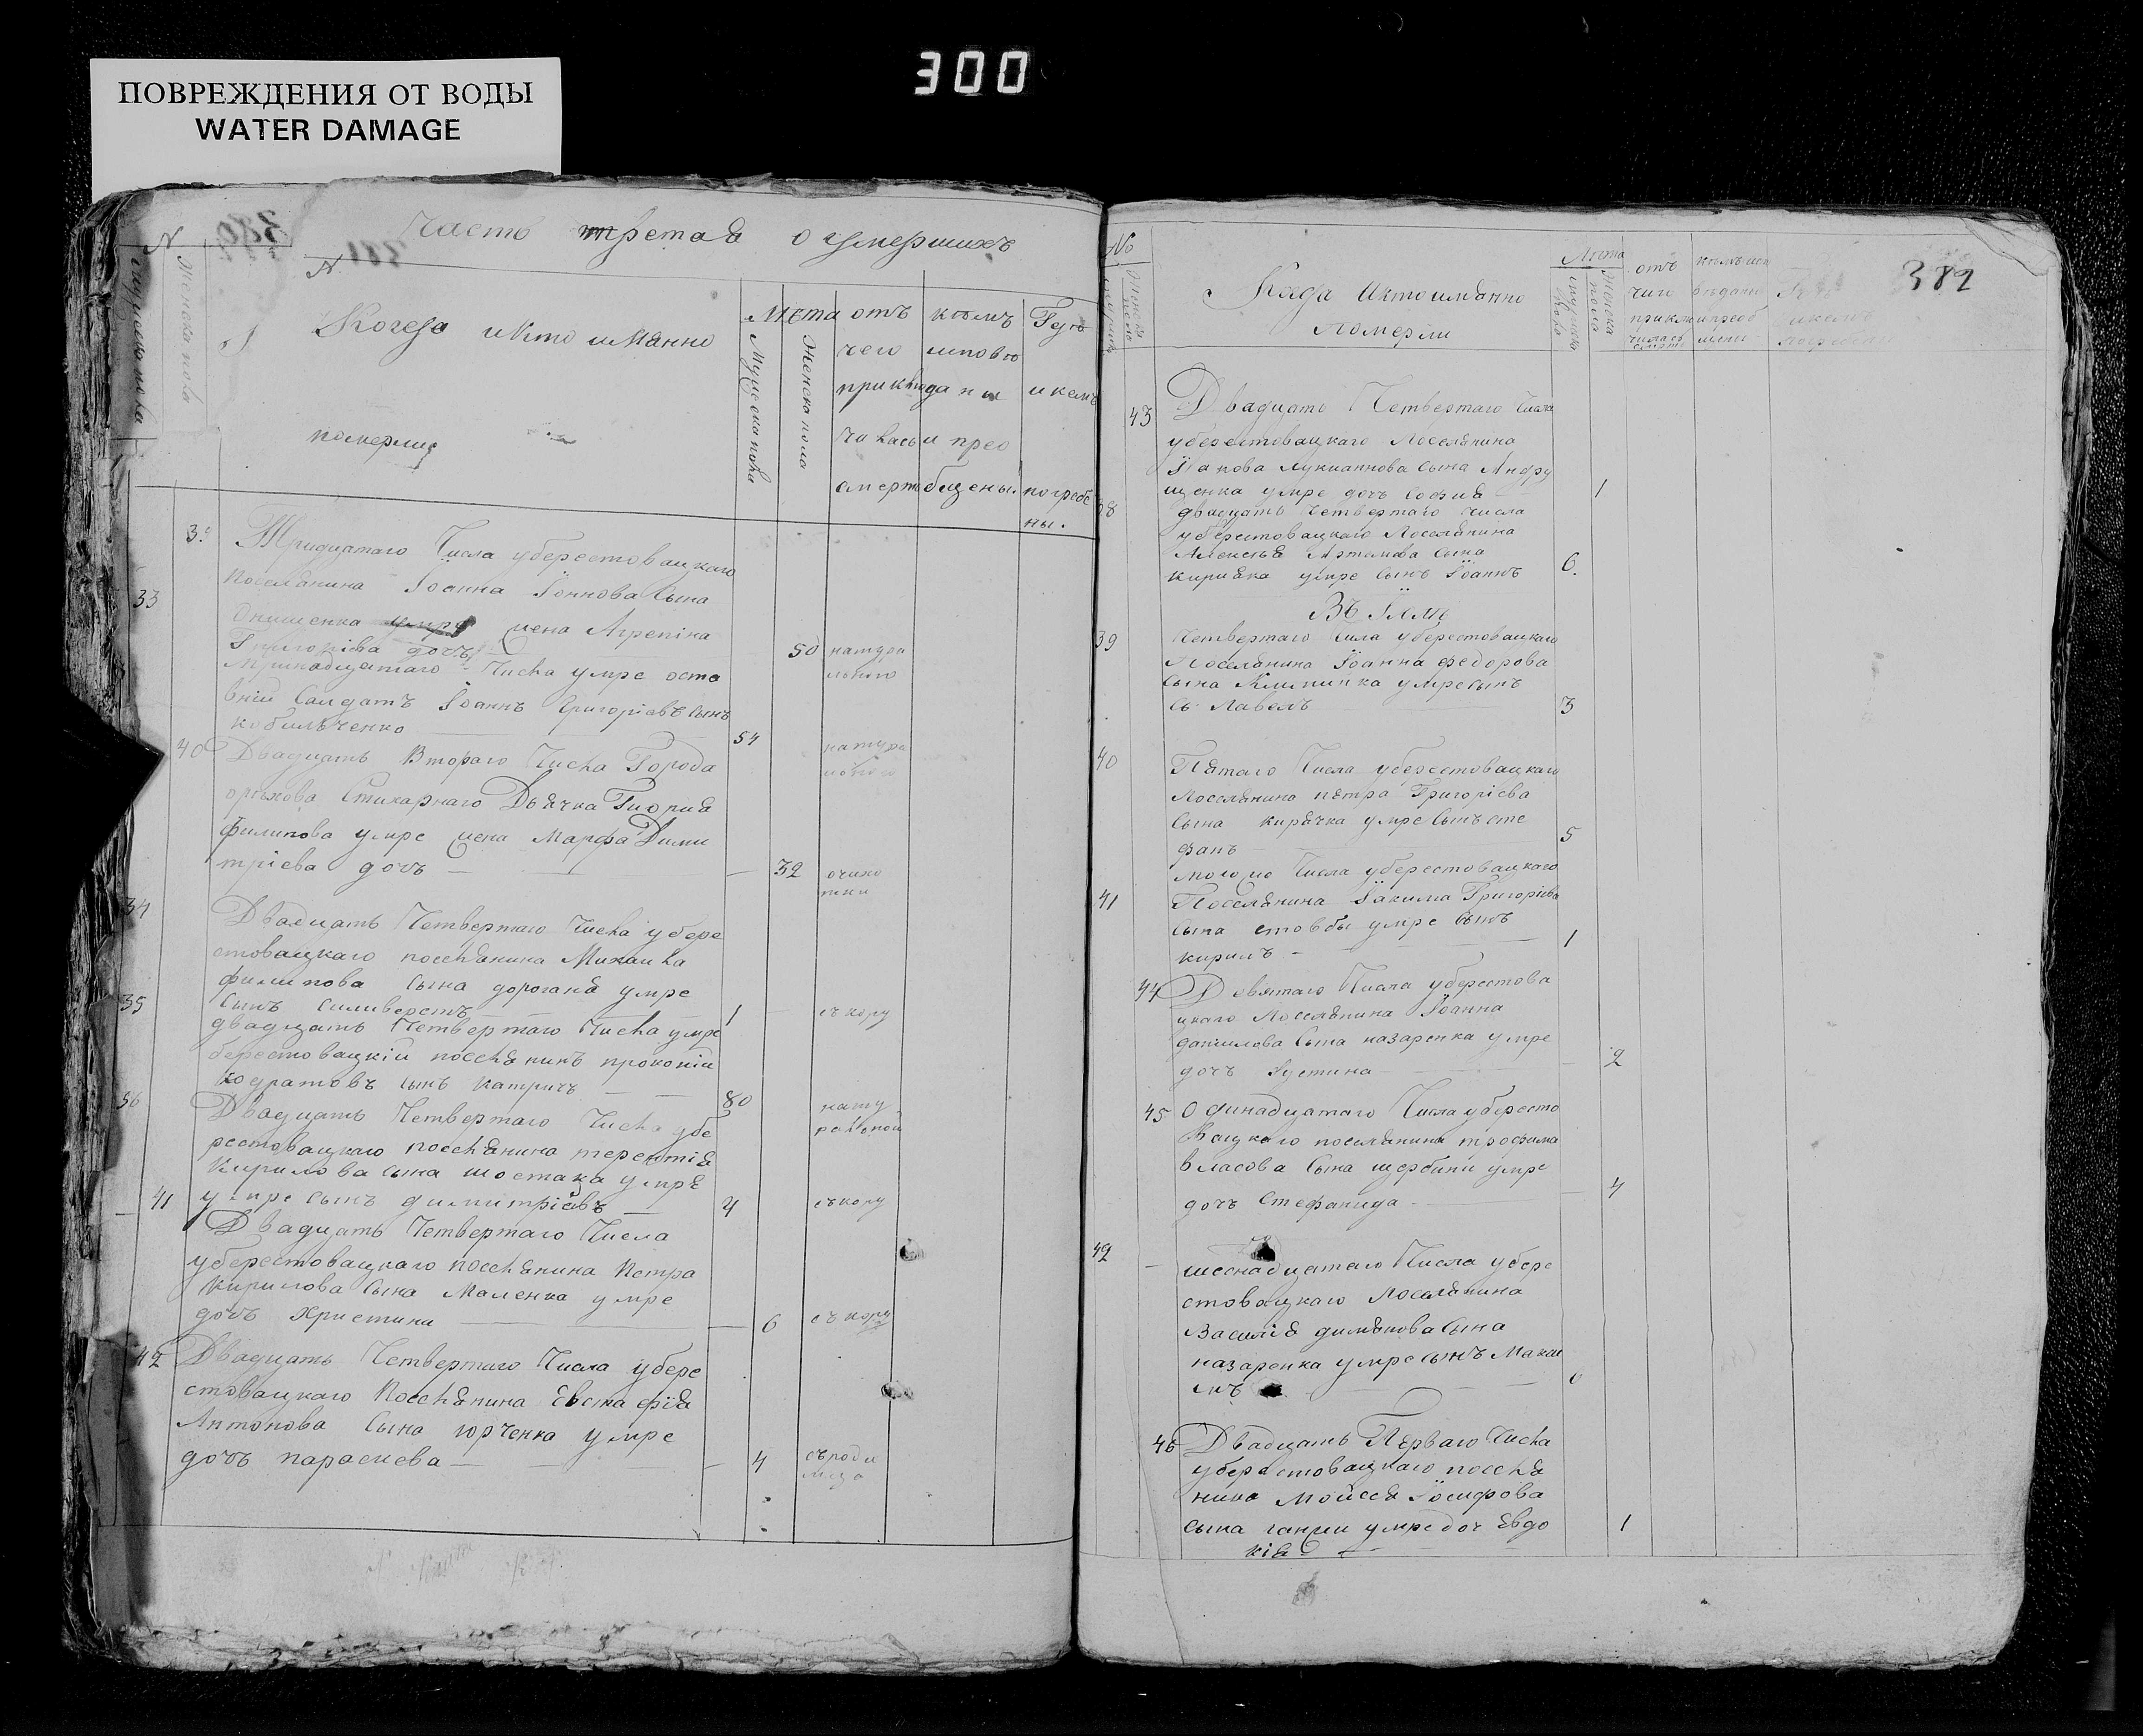 300
ПОВРЕЖДЕНИЯ ОТ ВОДЫ
WATER DAMAGE
Часть третая о умершихъ
N
N
Когда и кто имянно
померли
Мужеска пола
Женска пола
Лѣта
Мужеска пола
Женска пола
отъ
чего
приклю
чилась
смерть
кѣмъ
исповѣ
даны
и прео
бщены.
Гдѣ
и кемъ
погребе
ны.
Тридцатаго Числа уберестовацкаго
поселянина Іоанна Іоннова Сына
33
Онищенка умре жена Агрепіна
Григоріва дочь 50 натура
льного
Тринадцатаго Числа умре оста
вній Салдатъ Іоаннъ Григоріевъ Сынъ
кобильченко 54 натура
льного
40 Двадцать Втораго Числа Города
орѣхова Стихарнаго Дьячка
филипова умре жена Марфа Дими
тріева дочь 32
34
Двадцать Четвертаго Числа убере
стовацкаго поселянина Михаила
филипова Сына умре
35 Сынъ Силиверстъ 1
двадцать Четвертаго Числа умре
берестовацкій поселянинъ прокопій
кодратовъ Сынъ катричъ 80 нату
ральной
36 Двадцать Четвертаго Числа убе
рестовацкаго поселянина терентія
Кирилова Сына шостака умре
умре Сынъ димитріевъ 4
41 Двадцать Четвертаго Числа
уберестовацкаго поселянина Петра
Кирилова Сына Маленка умре
дочь Христина 6
42 Двадцать Четвертаго Числа убере
стовацкаго Поселянина Евстафія
Антонова Сына юрченка умре
дочь параскева 4
382
No
Когда и кто имянно
померли
Лѣта
отъ
чего
приклю
чилась
смерть
43 Двадцать Четвертаго Числа
уберестовацкаго Поселянина
Іакова Лукианнова Сына Андру
щенка умре дочь Софія 1
38 двадцать Четвертаго числа
уберестовацкаго Поселянина
Алексѣя Артемова Сына
Кирияка умре Сынъ Іоаннъ 6.
Въ Іюлѣ
39 Четвертаго Числа уберестовацкаго
Поселянина Іоанна федорова
Сына умре Сынъ
Павелъ 3
40 Пятаго Числа уберестовацкаго
Поселянино пѣтра Григоріева
Сына Кирячка умре Сынъ сте
фанъ 5
Числа уберестовацкаго
41 Поселянина Іакима Григоріева
Сына стовбы умре Сынъ
кирилъ 1
44 Девятаго Числа уберестова
цкаго Поселянина Іоанна
данилова Сына назаренка умре
дочь Іустина 2
45 Одинадцатаго Числа убересто
вацкаго поселянина трофима
власова Сына щербини умре
дочь Стефанида 4
42 шеснадцатаго Числа убере
стовацкаго Поселянина
Василія Сына
назаренка умре Сынъ
46 Двадцать Перваго Числа
уберестовацкаго поселя
нина Мойсея Іосифова
Сына умре доч Евдо
кія 1